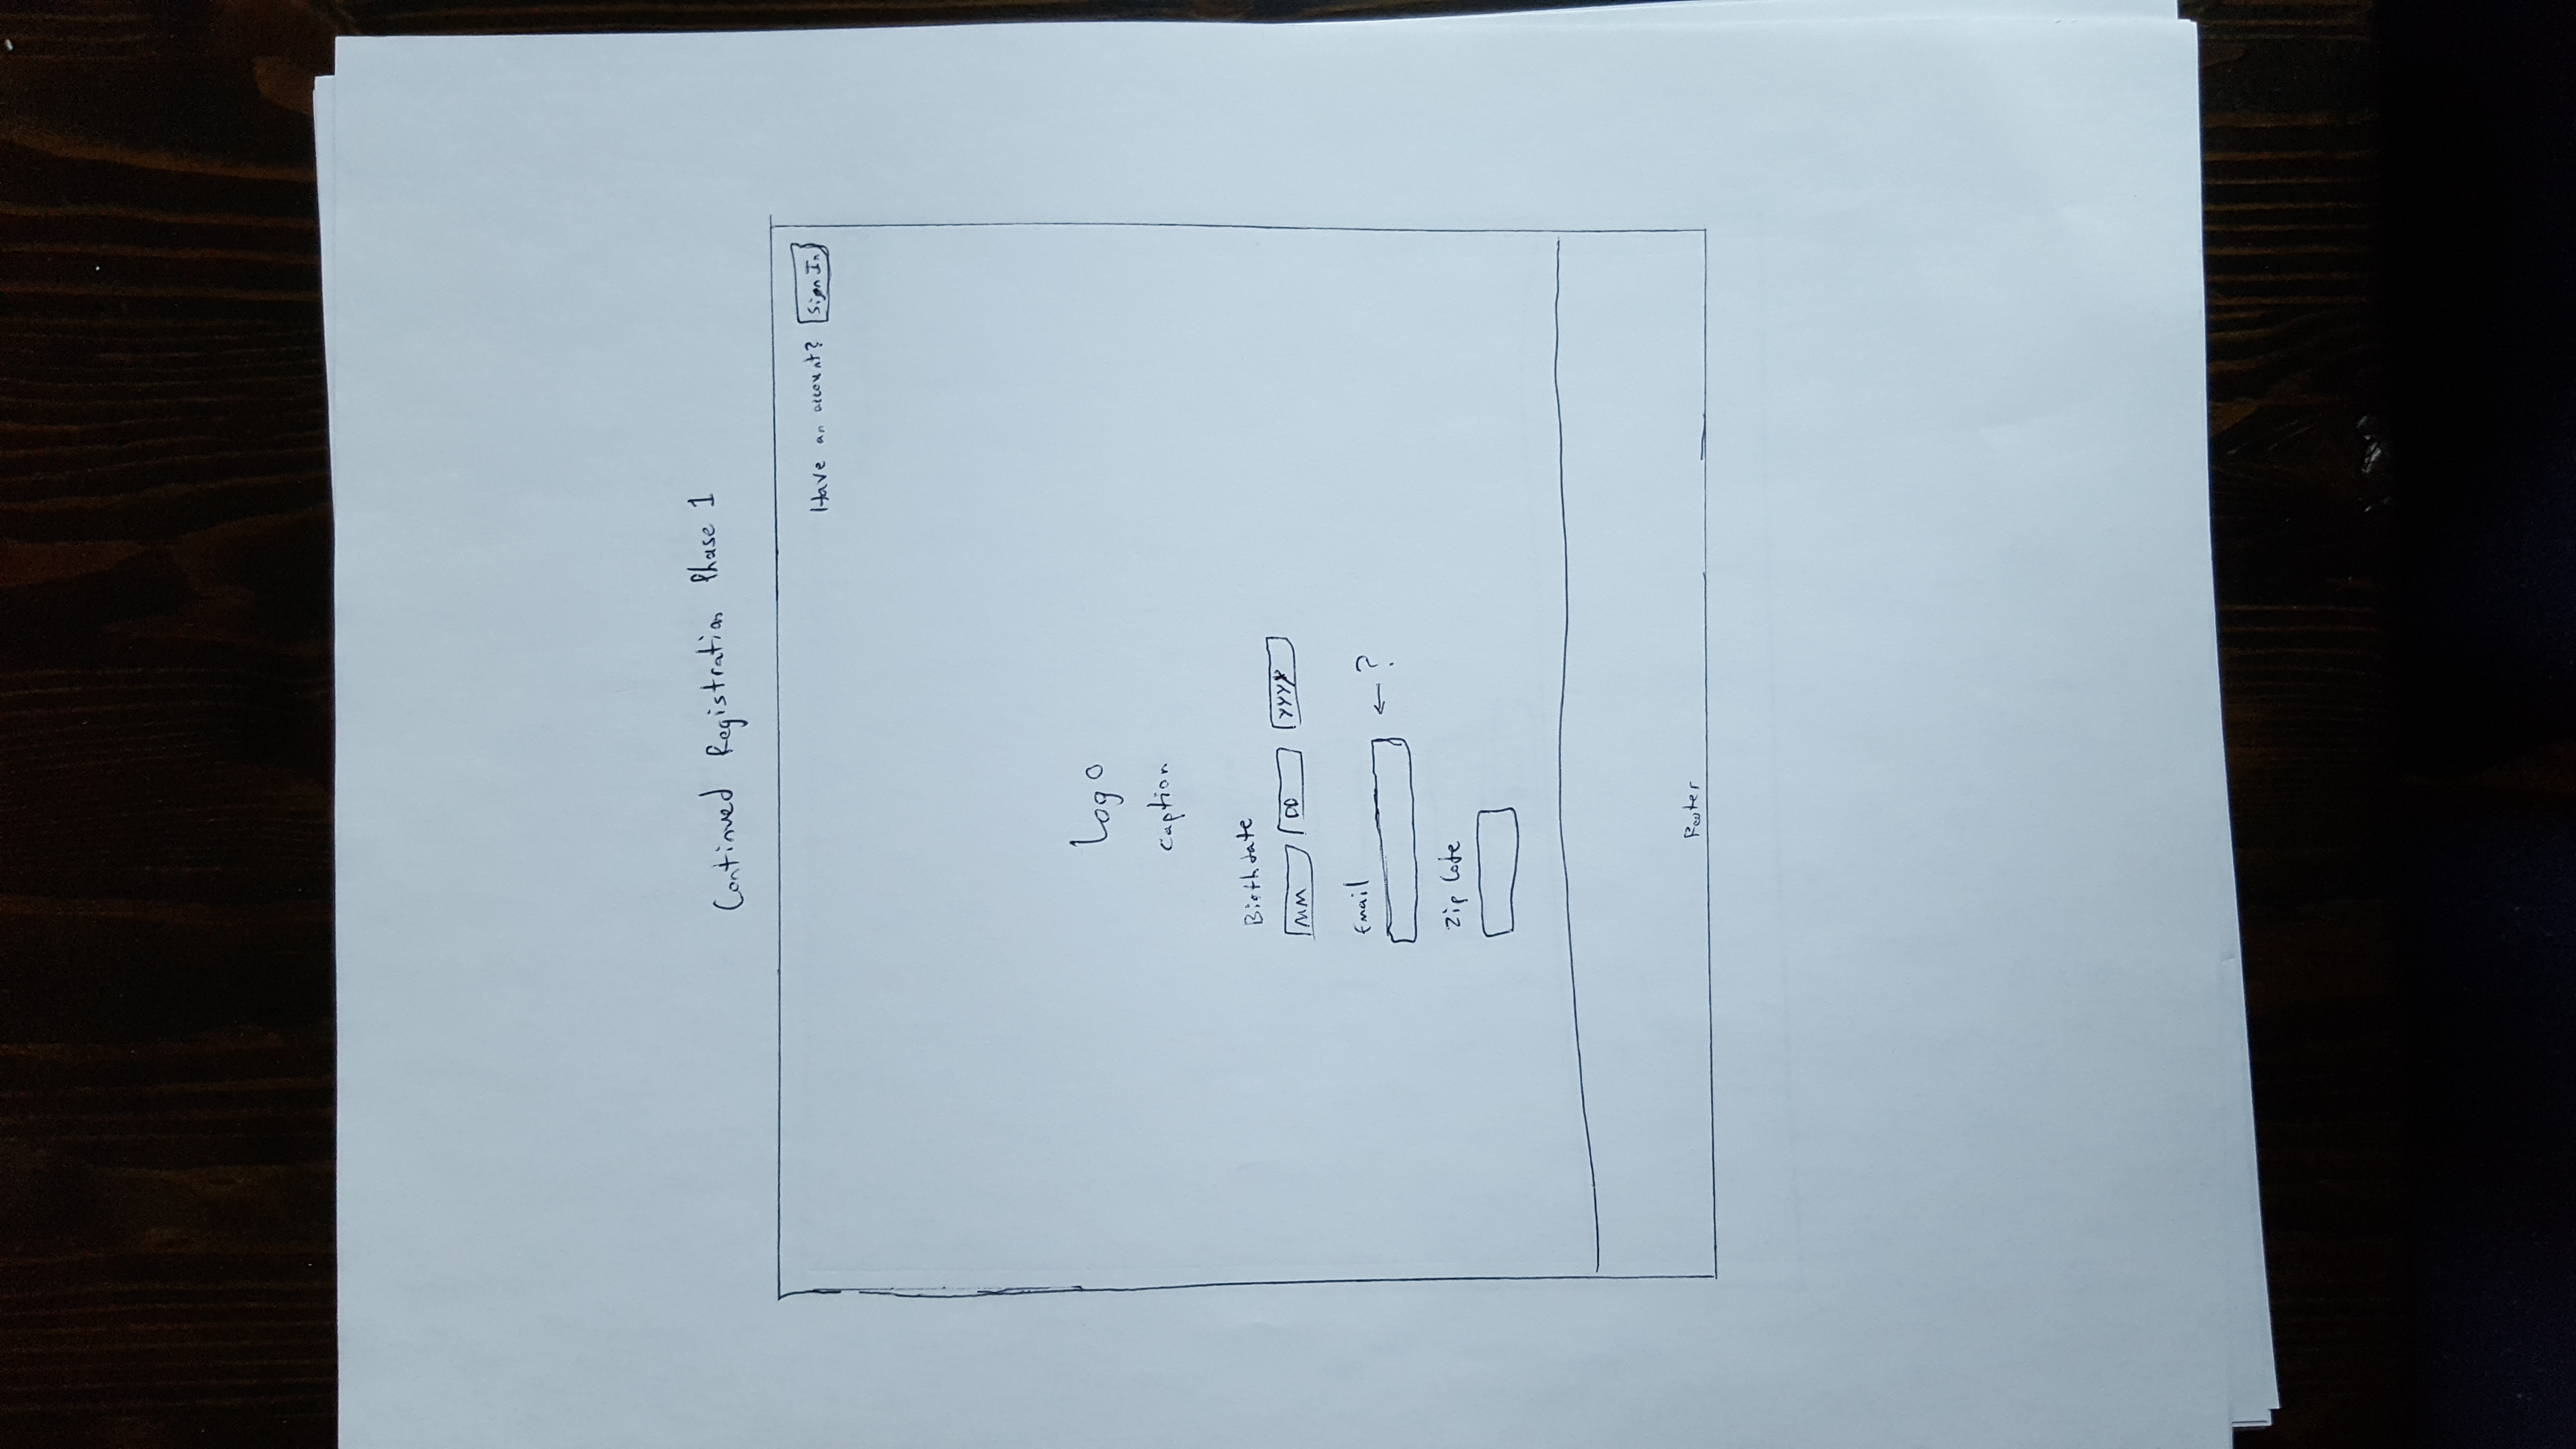 Continued Registration Phase 1
Have an account? Sign In
Logo
Caption
Birthdate
MM DD YYYY
Email
← ?
Zip Code
Footer